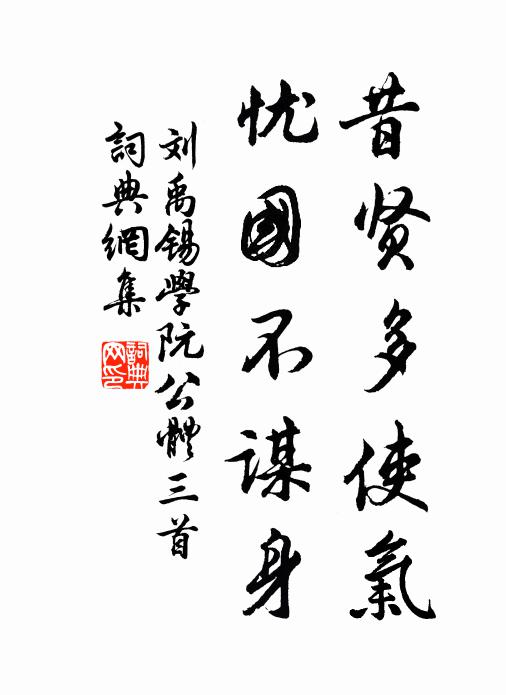 昔贤多使氣
忧國不谋身
刘禹锡學阮公體三首
詞典網集
詞典网印